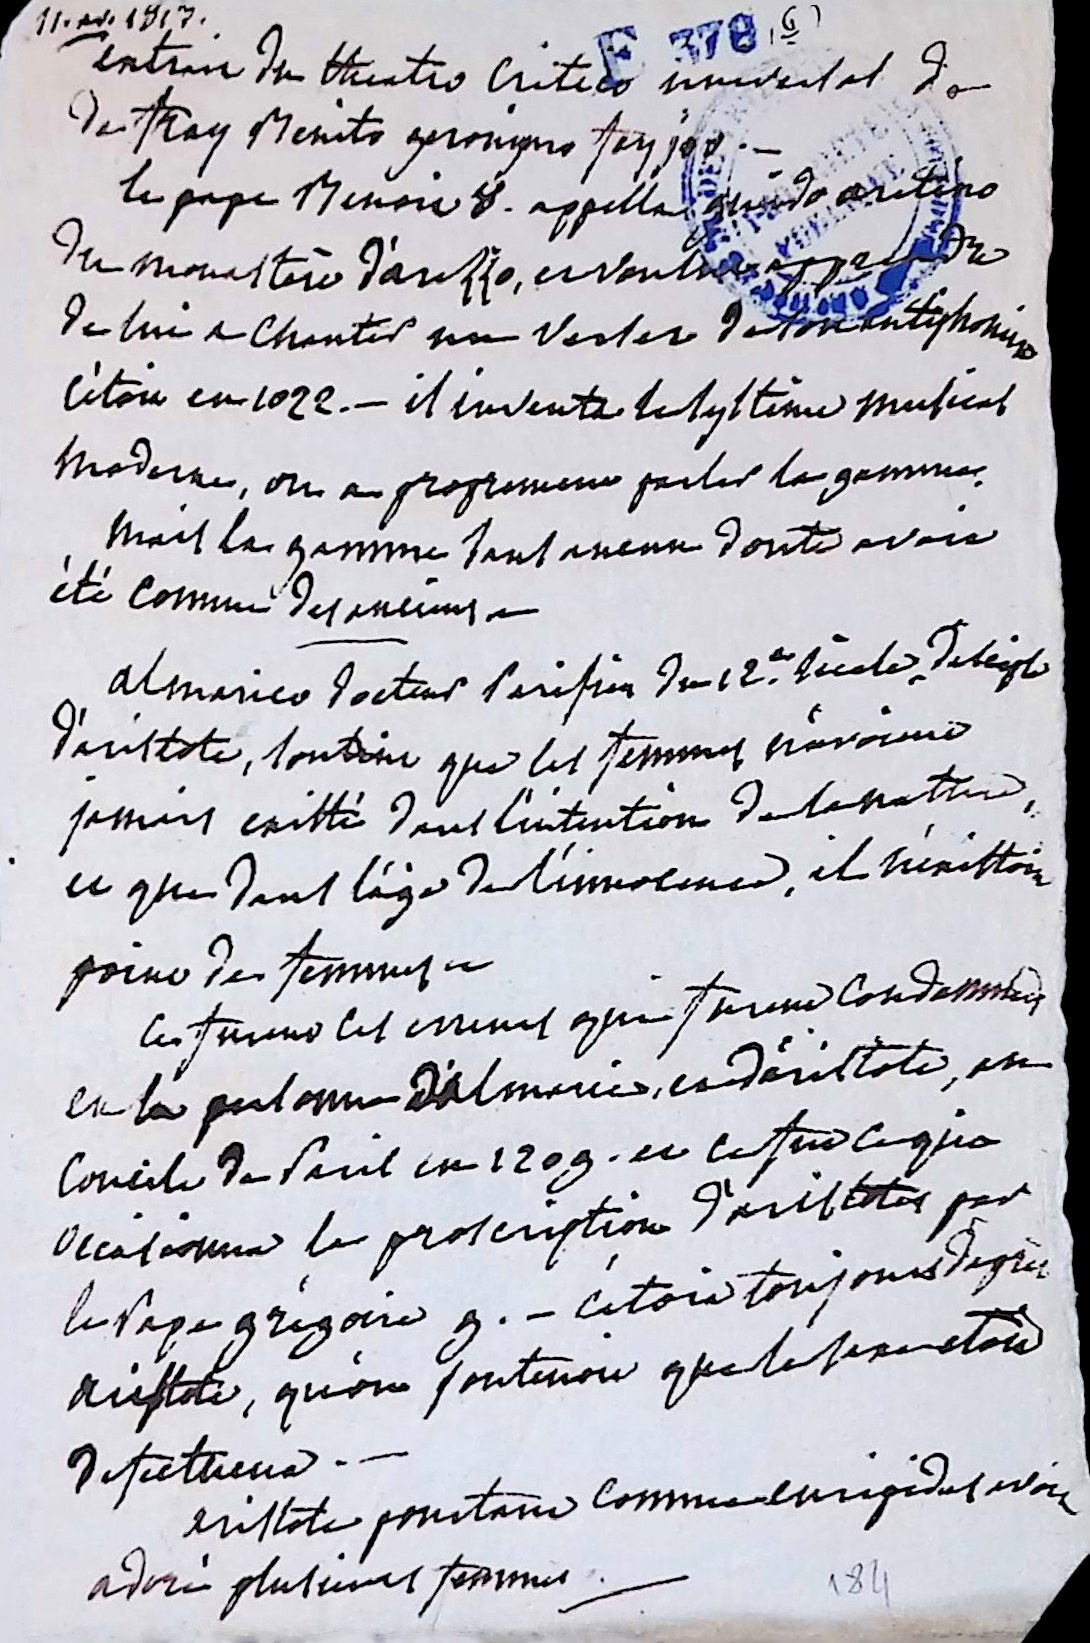 11. 1817.
F 378 (6)
extrait du theatro critico universal de
de fray Benito geronymo feyjoo. —
le pape Benoit 8. appella guido aretino
du monastère d'arezzo, et voulut apprendre
de lui a chanter un verset de son antiphonier
c'étoit en 1022. — il inventa le système musical
moderne, ou a proprement parler la gamme.
mais la gamme sans aucun doute avoit
été connue des anciens —
almarico docteur Parisien du 12.e siècle, disciple
d'aristote, soutint que les femmes n'avoient
jamais existé dans l'intention de la nature,
et que dans l'âge de l'innocence, il n'existoit
point de femmes —
ce furent ces erreurs qui furent condamnées
en la personne d'almaric, et d'aristote, au
concile de Paris en 1209. et ce fut ce qui
occasionna la proscription d'aristote par
le Pape grégoire 9. — c'étoit toujours d'après
aristote, qu'on soutenoit que le sexe etoit
defectueux. —
aristote pourtant comme euripides avoit
adoré plusieurs femmes. —
184